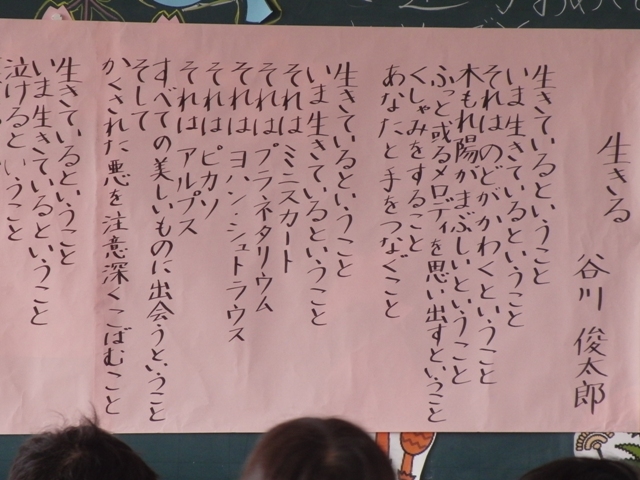 生きる
谷川 俊太郎
生きているということ
いま生きているということ
それはのどがかわくということ
木もれ陽がまぶしいということ
ふっと或るメロディを思い出すということ
くしゃみをすること
あなたと手をつなぐこと
生きているということ
いま生きているということ
それはミニスカート
それはプラネタリウム
それはヨハン・シュトラウス
それはピカソ
それはアルプス
すべての美しいものに出会うということ
そして
かくされた悪を注意深くこばむこと
生きているということ
いま生きているということ
泣けるということ